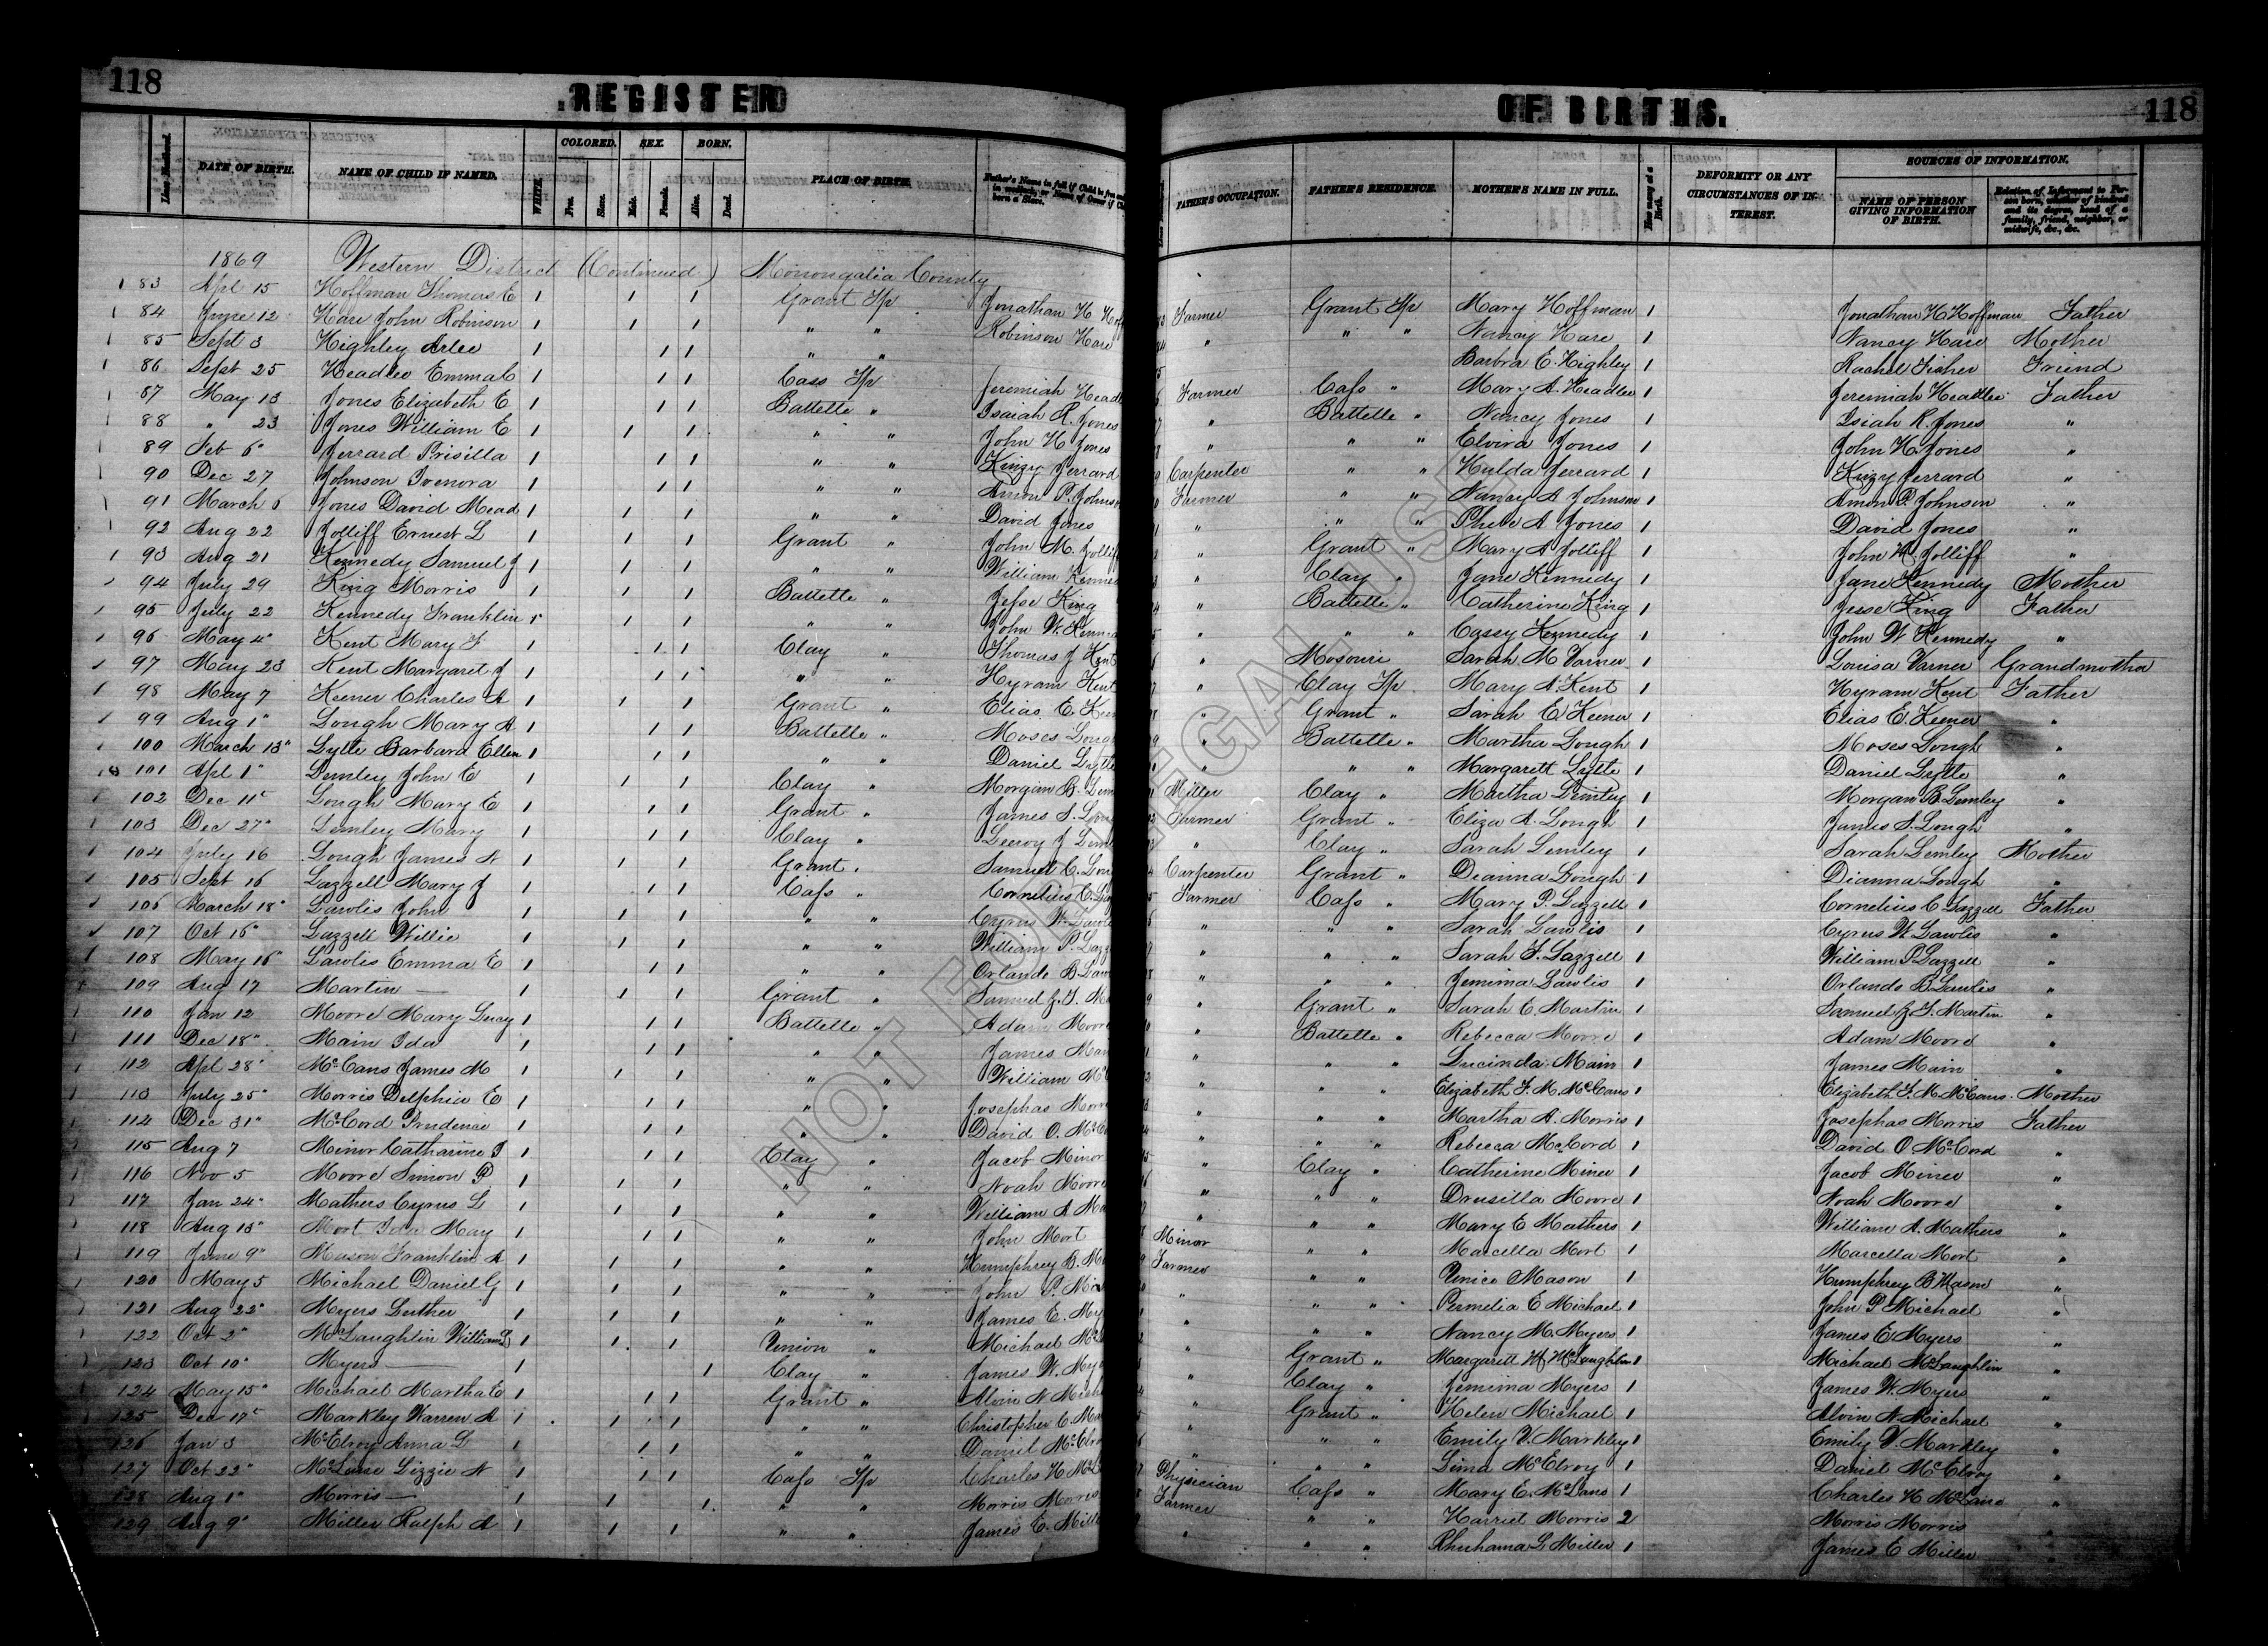 118
REGISTER
OF BIRTHS.
118
Line Numbered. DATE OF BIRTH. NAME OF CHILD IF NAMED. WHITE. COLORED. Free. Slave. SEX. Male. Female. BORN. Alive. Dead. PLACE OF BIRTH. Father's Name in full if Child be free
FATHER'S OCCUPATION. FATHER'S RESIDENCE. MOTHER'S NAME IN FULL. How many at a Birth. DEFORMITY OR ANY CIRCUMSTANCES OF INTEREST. SOURCES OF INFORMATION. NAME OF PERSON GIVING INFORMATION OF BIRTH. Relation of Informant to Person born, whether of kindred and its degree, head of a family, friend, neighbor, or midwife, &c., &c.
1869 Western District (Continued) Monongalia County
83 Apl 15 Hoffman Thomas E 1 1 1 Grant Tp Jonathan H Hoff Farmer Grant Tp Mary Hoffman 1 Jonathan H Hoffman Father
84 June 12 Hare John Robinson 1 1 1 " " Robinson Hare " " " Nancy Hare 1 Nancy Hare Mother
85 Sept 3 Highley Arlee 1 1 1 " " Barbra E. Highley 1 Rachel Fisher Friend
86 Sept 25 Headlee Emma C 1 1 1 Cass Tp Jeremiah Headl Farmer Cass " Mary A. Headlee 1 Jeremiah Headlee Father
87 May 13 Jones Elizabeth E 1 1 1 Battelle " Isaiah R. Jones " Battelle " Nancy Jones 1 Isiah R. Jones "
88 " 23 Jones William E 1 1 1 " " John H Jones " " " Elvira Jones 1 John H. Jones "
89 Feb 6" Jerrard Prisilla 1 1 1 " " Kinzy Jerrard Carpenter " " Hulda Jerrard 1 Kinzy Jerrard "
90 Dec 27 Johnson Ivenora 1 1 1 " " Amon P. Johnso Farmer " " Nancy A Johnson 1 Amon P. Johnson "
91 March 6 Jones David Mead 1 1 1 " " David Jones " " " Phebe A Jones 1 David Jones "
92 Aug 22 Jolliff Ernest L 1 1 1 Grant " John M. Jolliff " Grant " Mary A Jolliff 1 John M. Jolliff "
93 Aug 21 Kennedy Samuel J 1 1 1 " " William Kenne " Clay " Jane Kennedy 1 Jane Kennedy Mother
94 July 29 King Morris 1 1 1 Battelle " Jesse King " Battelle " Catherine King 1 Jesse King Father
95 July 22 Kennedy Franklin 1 1 1 " " John W. Kenn " " " Cassy Kennedy 1 John W Kennedy "
96 May 4" Kent Mary F 1 1 1 Clay " Thomas J Kent " Mosouri Sarah M Varner 1 Louisa Varner Grandmother
97 May 23 Kent Margaret J 1 1 1 " " Hyram Kent " Clay Tp Mary A. Kent 1 Hyram Kent Father
98 May 7 Keener Charles A 1 1 1 Grant " Elias E. Keen " Grant " Sarah E Keener 1 Elias E. Keener "
99 Aug 1" Lough Mary A 1 1 1 Battelle " Moses Lough " Battelle " Martha Lough 1 Moses Lough "
100 March 13" Lytle Barbara Ellen 1 1 1 " " Daniel Lytle " " " Margarett Lytle 1 Daniel Lytle "
101 Apl 1" Lemley John E 1 1 1 Clay " Morgan B. Lem Miller Clay " Martha Lemley 1 Morgan B. Lemley "
102 Dec 11" Lough Mary E 1 1 1 Grant " James S. Lou Farmer Grant " Eliza A. Lough 1 James S. Lough "
103 Dec 27" Lemley Mary 1 1 1 Clay " Leeroy J Lem " Clay " Sarah Lemley 1 Sarah Lemley Mother
104 July 16 Lough James N 1 1 1 Grant " Samuel C. Lou Carpenter Grant " Dianna Lough 1 Dianna Lough "
105 Sept 16 Lazzell Mary J 1 1 1 Cass " Cornelius C. La Farmer Cass " Mary P. Lazzell 1 Cornelius C Lazzell Father
106 March 18" Lawlis John 1 1 1 " " Cyrus W. Lawl " " " Sarah Lawlis 1 Cyrus W. Lawlis "
107 Oct 16" Lazzell Willie 1 1 1 " " William P. Lazz " " " Sarah F. Lazzell 1 William P Lazzell "
108 May 16" Lawlis Emma E 1 1 1 " " Orlando B Law " " " Jemima Lawlis 1 Orlando B Lawlis "
109 Aug 17 Martin — 1 1 1 Grant " Samuel J. T. Ma " Grant " Sarah E. Martin 1 Samuel J. T. Martin "
110 Jan 12 Moore Mary Lucy 1 1 1 Battelle " Adam Moore " Battelle " Rebecca Moore 1 Adam Moore "
111 Dec 18" Main Ida 1 1 1 " " James Main " " " Lucinda Main 1 James Main "
112 Apl 28" McCans James M 1 1 1 " " William Mc " " " Elizabeth F. M. McCans 1 Elizabeth F. M. McCans Mother
113 July 25" Morris Delphia E 1 1 1 " " Josephas Morr " " " Martha A. Morris 1 Josephas Morris Father
114 Dec 31" McCord Prudence 1 1 1 " " David O. McCo " " " Rebecca McCord 1 David O McCord "
115 Aug 7 Minor Catharine 1 1 1 Clay " Jacob Minor " Clay " Catherine Miner 1 Jacob Miner "
116 Nov 5 Moore Simon P 1 1 1 " " Noah Moore " " " Drusilla Moore 1 Noah Moore "
117 Jan 24" Mathers Cyrus L 1 1 1 " " William A Ma " " " Mary E Mathers 1 William A. Mathers "
118 Aug 13" Mort Ida May 1 1 1 " " John Mort Minor " " Marcella Mort 1 Marcella Mort "
119 June 9" Mason Franklin A 1 1 1 " " Humphrey B. Ma Farmer " " Unice Mason 1 Humphrey B Mason "
120 May 5 Michael Daniel G 1 1 1 " " John P. Mic " " " Permelia E Michael 1 John P Michael "
121 Aug 22" Myers Luther 1 1 1 " " James E. Mye " " " Nancy M. Myers 1 James E. Myers "
122 Oct 2" McLaughlin William 1 1 1 Union " Michael McL " Grant " Margarett McLaughlin 1 Michael McLaughlin "
123 Oct 10" Myers — 1 1 Clay " James W. Mye " Clay " Jemima Myers 1 James W. Myers "
124 May 15" Michael Martha E 1 1 1 Grant " Alvin N Mich " Grant " Helen Michael 1 Alvin N. Michael "
125 Dec 17" Markley Warren A 1 1 1 " " Christopher C. Ma " " " Emily V. Markley 1 Emily V. Markley "
126 Jan 3 McElroy Anna L 1 1 1 " " Daniel McElro " " " Lima McElroy 1 Daniel McElroy "
127 Oct 22" McLane Lizzie N 1 1 1 Cass Tp Charles H McL Physician Cass " Mary E. McLane 1 Charles H McLane "
128 Aug 1" Morris — 1 1 1 " " Morris Morris Farmer " " Harriet Morris 2 Morris Morris "
129 Aug 9" Miller Ralph A 1 1 1 " " James E. Mill " " " Rhuhama L Miller 1 James E Miller "
NOT FOR LEGAL USE